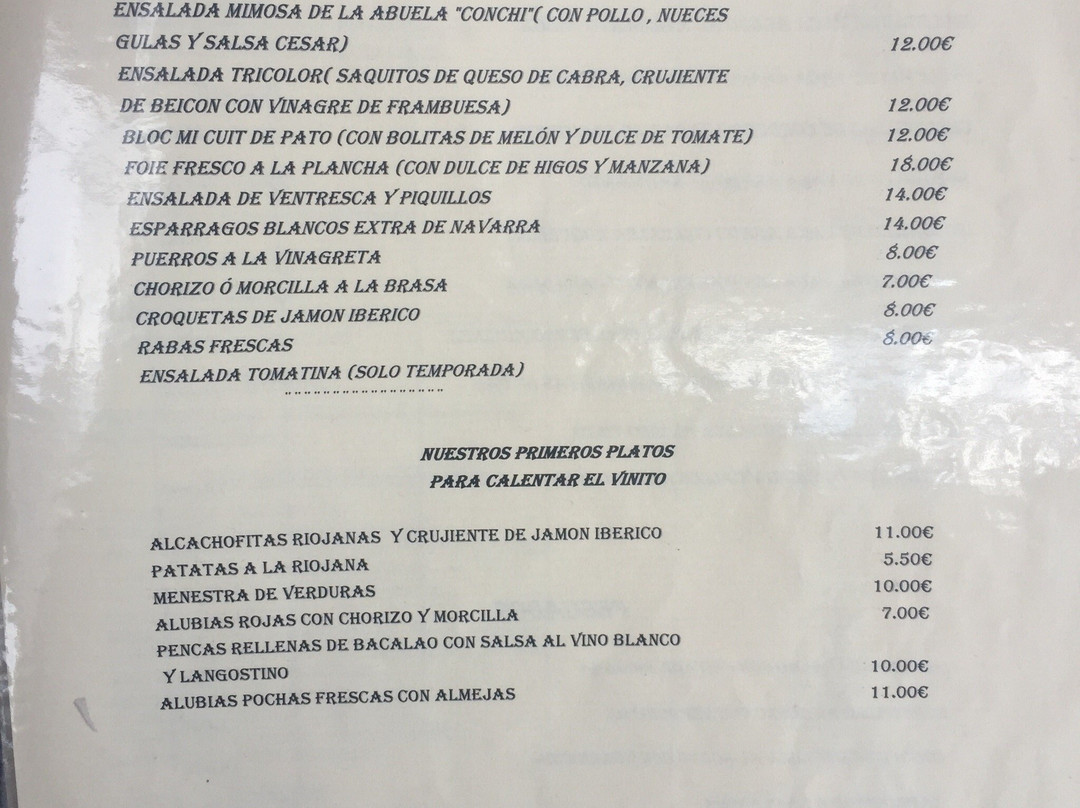 ENSALADA MIMOSA DE LA ABUELA "CONCHI"( CON POLLO , NUECES
GULAS Y SALSA CESAR) 12.00€
ENSALADA TRICOLOR( SAQUITOS DE QUESO DE CABRA, CRUJIENTE
DE BEICON CON VINAGRE DE FRAMBUESA) 12.00€
BLOC MI CUIT DE PATO (CON BOLITAS DE MELÓN Y DULCE DE TOMATE) 12.00€
FOIE FRESCO A LA PLANCHA (CON DULCE DE HIGOS Y MANZANA) 18.00€
ENSALADA DE VENTRESCA Y PIQUILLOS 14.00€
ESPARRAGOS BLANCOS EXTRA DE NAVARRA 14.00€
PUERROS A LA VINAGRETA 8.00€
CHORIZO Ó MORCILLA A LA BRASA 7.00€
CROQUETAS DE JAMON IBERICO 8.00€
RABAS FRESCAS 8.00€
ENSALADA TOMATINA (SOLO TEMPORADA)
NUESTROS PRIMEROS PLATOS
PARA CALENTAR EL VINITO
ALCACHOFITAS RIOJANAS Y CRUJIENTE DE JAMON IBERICO 11.00€
PATATAS A LA RIOJANA 5.50€
MENESTRA DE VERDURAS 10.00€
ALUBIAS ROJAS CON CHORIZO Y MORCILLA 7.00€
PENCAS RELLENAS DE BACALAO CON SALSA AL VINO BLANCO
Y LANGOSTINO 10.00€
ALUBIAS POCHAS FRESCAS CON ALMEJAS 11.00€